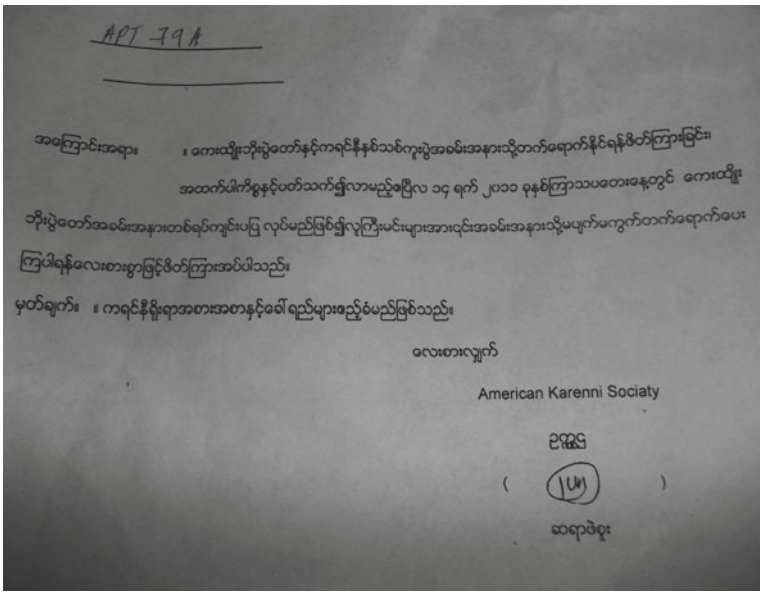 APT 79A
အကြောင်းအရာ။ ။ ကေးထျိုးဘိုးပွဲတော်နှင့်ကရင်နီနှစ်သစ်ကူးပွဲအခမ်းအနားသို့တက်ရောက်နိုင်ရန်ဖိတ်ကြားခြင်း၊
အထက်ပါကိစ္စနှင့်ပတ်သက်၍လာမည့်ဧပြီလ ၁၄ ရက် ၂၀၁၁ ခုနှစ်ကြာသပတေးနေ့တွင် ကေးထျိုး
ဘိုးပွဲတော်အခမ်းအနားတစ်ရပ်ကျင်းပပြုလုပ်မည်ဖြစ်၍လူကြီးမင်းများအား၎င်းအခမ်းအနားသို့မပျက်မကွက်တက်ရောက်ပေး
ကြပါရန်လေးစားစွာဖြင့်ဖိတ်ကြားအပ်ပါသည်။
မှတ်ချက်။ ။ ကရင်နီရိုးရာအစားအစာနှင့်ခေါ်ရည်များဧည့်ခံမည်ဖြစ်သည်။
လေးစားလျှက်
American Karenni Sociaty
ဥက္ကဋ္ဌ
( )
ဆရာဖဲစူး